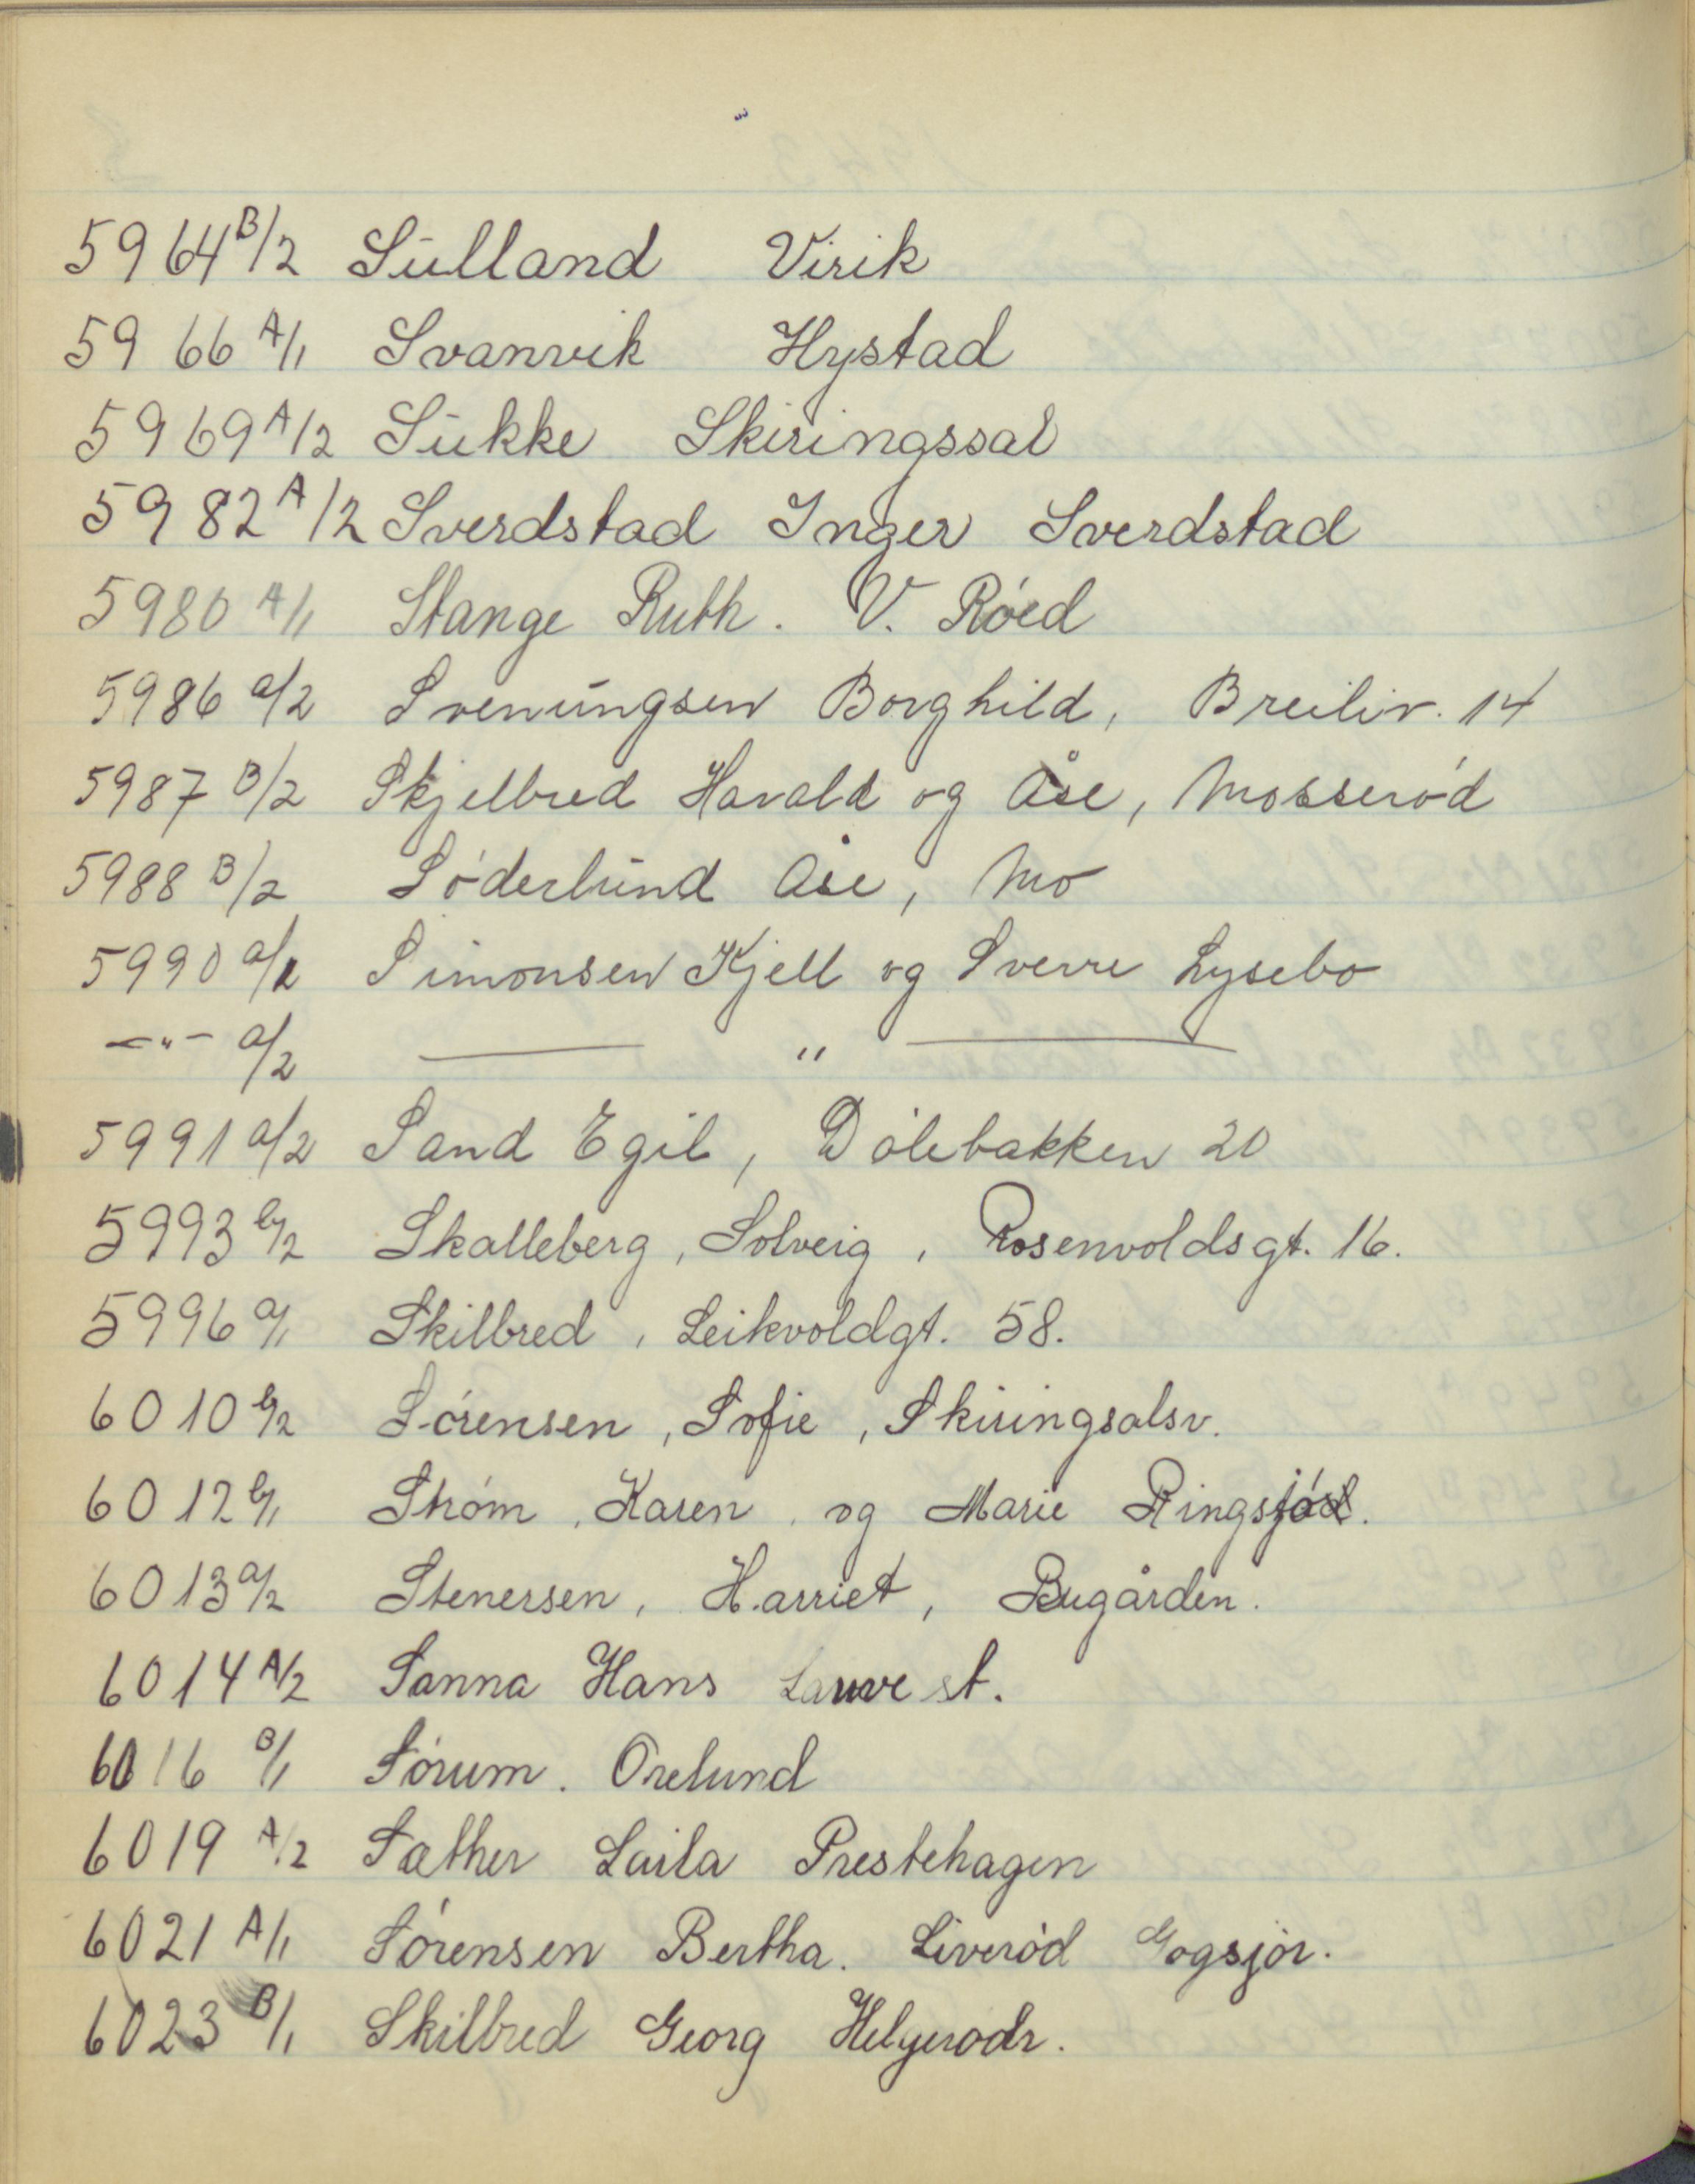 5964 B/2 Sūlland Virik
5966 A/1 Svanvik Hystad
5969 A/2 Sūkke Skiringssal
5982 A/2 Sverdstad Inger Sverdstad
5980 A/1 Stange Ruth. V. Róed
5986 a/2 Svenūngsen Borghild, Breiliv. 14
5987 B/2 Skjelbred Harald og Åse, Mosserød
5988 B/2 Søderlūnd Åse, Mo
5990 a/1 Simonsen Kjell og Sverre Lysebo
—"— a/2 —— " ——
5991 a/2 Sand Egil, Dølebakken 20
5993 b/2 Skalleberg, Solveig, Rosenvoldsgt. 16.
5996 a/1 Skilbred, Leikvoldgt. 58.
6010 b/2 Sørensen, Sofie, Skiringsalsv.
6012 b/1 Strøm, Karen, og Marie
6013 a/2 Stenersen, Harriet, Bugården.
6014 A/2 Sanna Hans Lauve st.
6016 B/1 Sørum. Orelund
6019 A/2 Sæther Laila Prestehagen
6021 A/1 Sørensen Bertha. Liverød Gogsjør.
6023 B/1 Skilbred Georg Helgerødr.